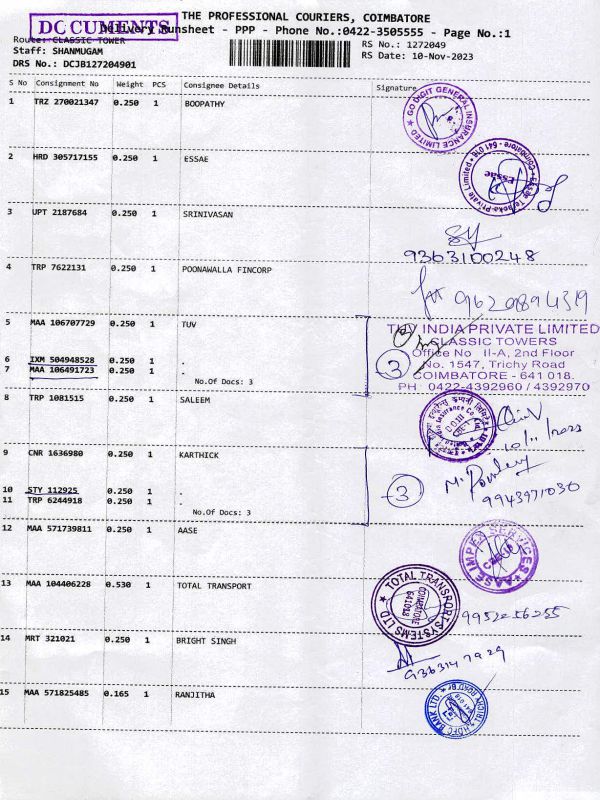 THE PROFESSIONAL COURIERS, COIMBATORE
DOCUMENTS
Delivery Runsheet - PPP - Phone No.:0422-3505555 - Page No.:1
Route: CLASSIC TOWER
RS No.: 1272049
Staff: SHANMUGAM
RS Date: 10-Nov-2023
DRS No.: DCJB127204901
S No Consignment No Weight PCS Consignee Details Signature
1 TRZ 270021347 0.250 1 BOOPATHY
GO DIGIT GENERAL INSURANCE LIMITED
2 HRD 305717155 0.250 1 ESSAE
Private Limited Coimbatore - 641 018
Essae
3 UPT 2187684 0.250 1 SRINIVASAN
9363100248
4 TRP 7622131 0.250 1 POONAWALLA FINCORP
5 MAA 106707729 0.250 1 TUV
TUV INDIA PRIVATE LIMITED
CLASSIC TOWERS
Office No II-A, 2nd Floor
No. 1547, Trichy Road
COIMBATORE - 641 018.
PH 0422-4392960 / 4392970
6 IXM 504948528 0.250 1 .
7 MAA 106491723 0.250 1 .
3
No.Of Docs: 3
8 TRP 1081515 0.250 1 SALEEM
10/11/2023
9 CNR 1636980 0.250 1 KARTHICK
10 STY 112925 0.250 1 .
3
9943971030
11 TRP 6244918 0.250 1 .
No.Of Docs: 3
12 MAA 571739811 0.250 1 AASE
AASE IMPEX SERVICES
13 MAA 104406228 0.530 1 TOTAL TRANSPORT
TOTAL TRANSPORT SYSTEMS LTD
COIMBATORE
641018
9952256255
14 MRT 321021 0.250 1 BRIGHT SINGH
15 MAA 571825485 0.165 1 RANJITHA
HDFC BANK LTD. TRICHY ROAD BR